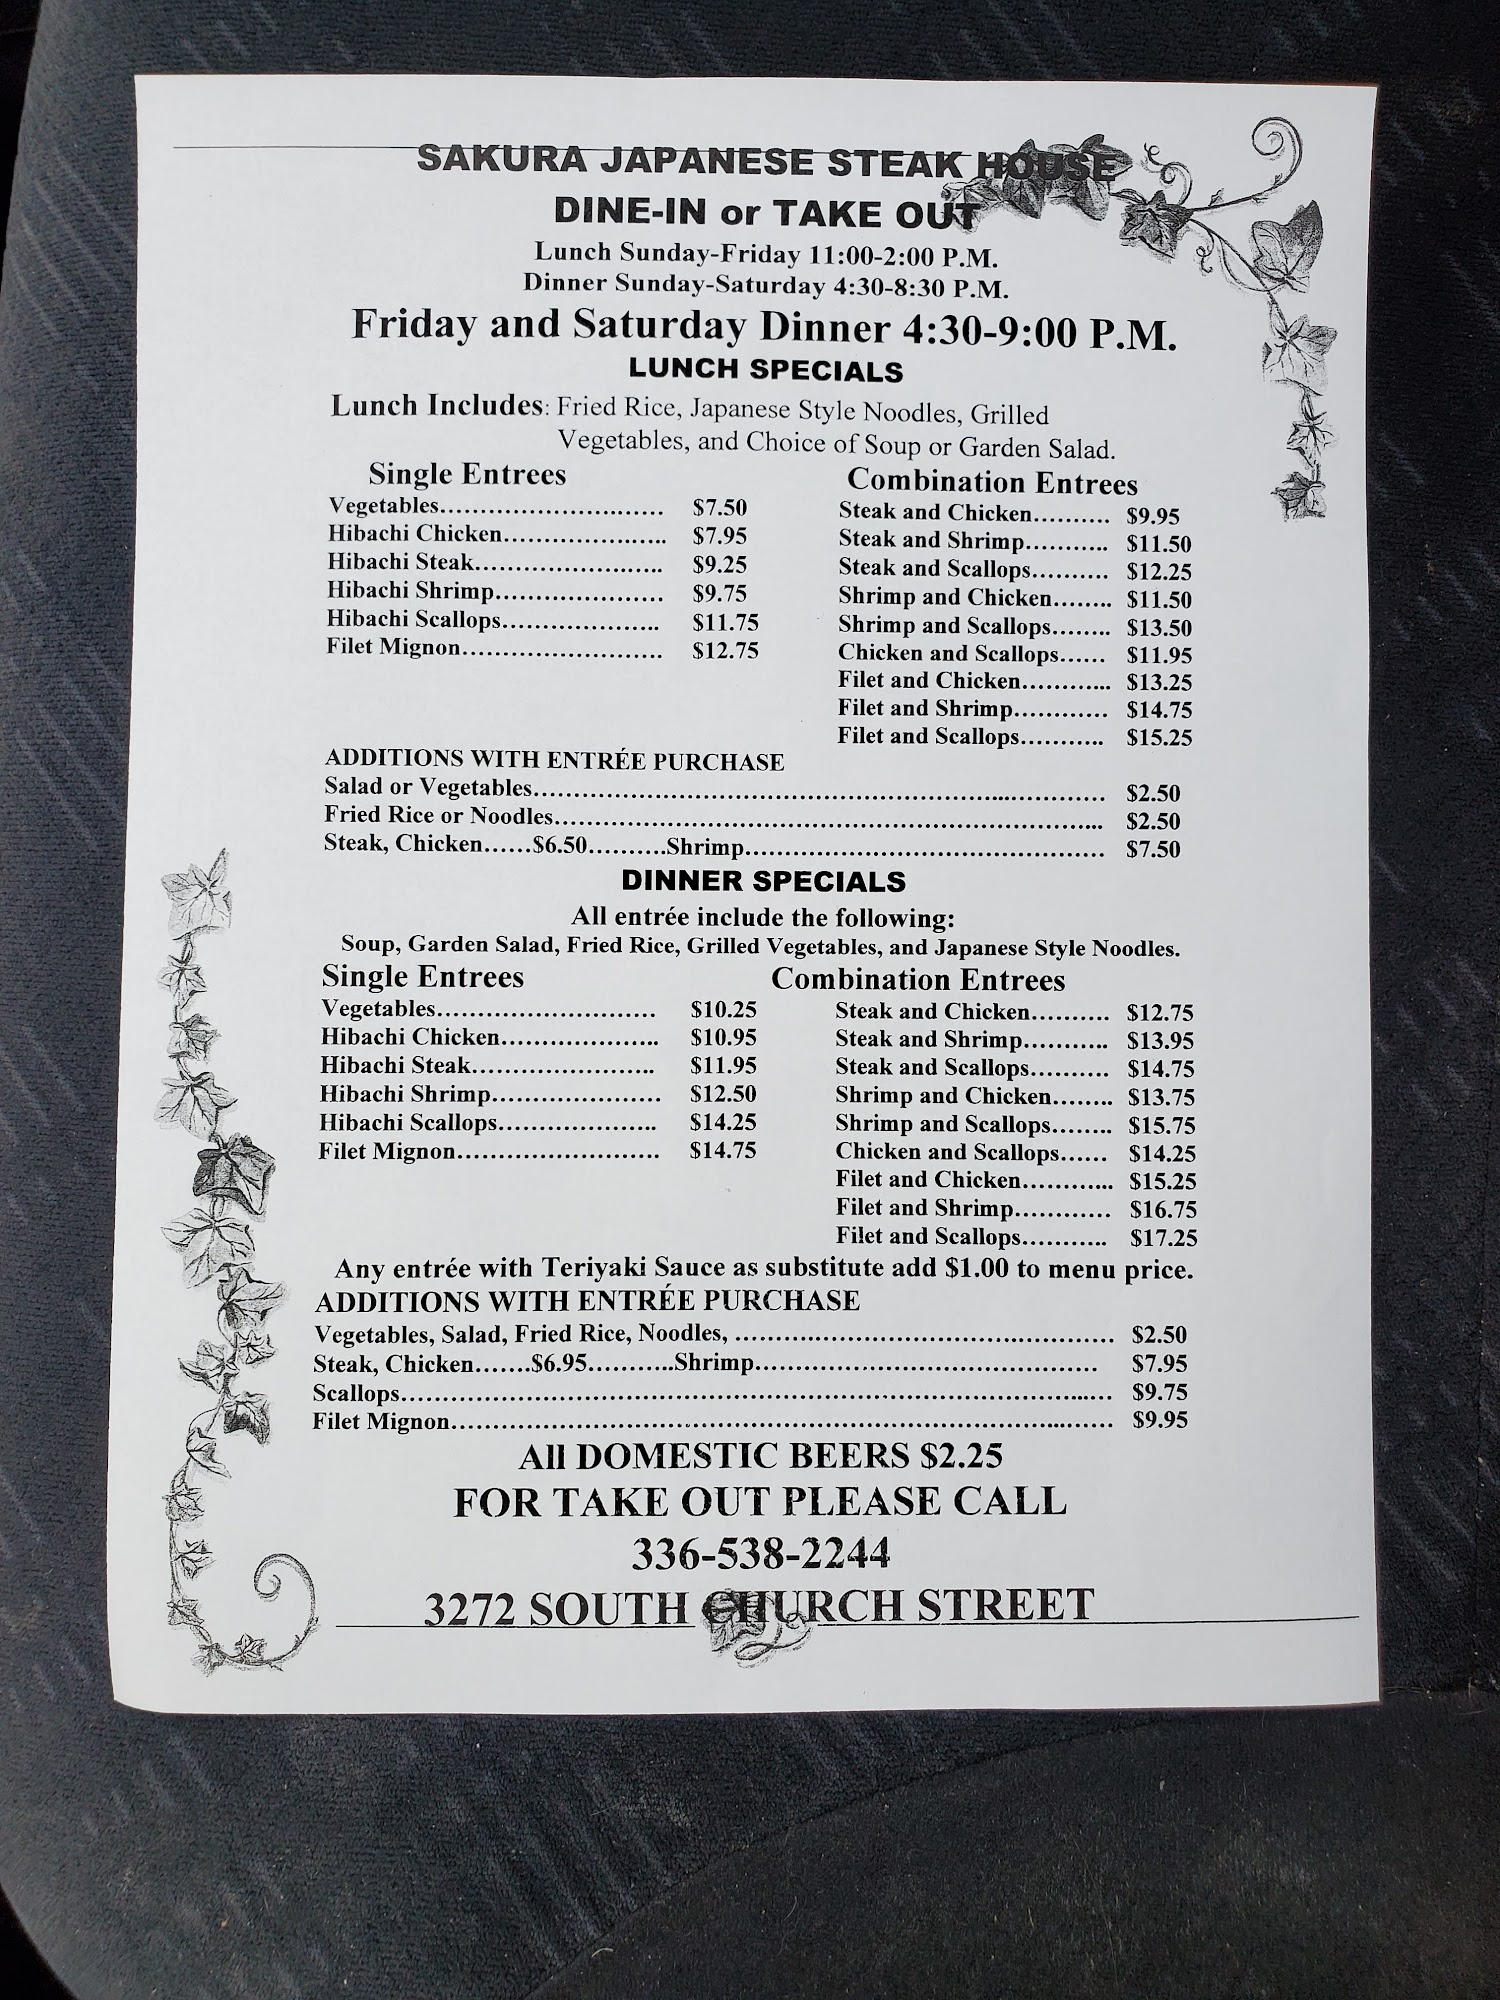 SAKURA JAPANESE STEAK HOUSE
DINE-IN or TAKE OUT
Lunch Sunday-Friday 11:00-2:00 P.M.
Dinner Sunday-Saturday 4:30-8:30 P.M.
Friday and Saturday Dinner 4:30-9:00 P.M.
LUNCH SPECIALS
Lunch Includes: Fried Rice, Japanese Style Noodles, Grilled
Vegetables, and Choice of Soup or Garden Salad.
Single Entrees
Vegetables........................... $7.50
Hibachi Chicken.................... $7.95
Hibachi Steak....................... $9.25
Hibachi Shrimp..................... $9.75
Hibachi Scallops................... $11.75
Filet Mignon......................... $12.75
Combination Entrees
Steak and Chicken.......... $9.95
Steak and Shrimp........... $11.50
Steak and Scallops.......... $12.25
Shrimp and Chicken........ $11.50
Shrimp and Scallops........ $13.50
Chicken and Scallops...... $11.95
Filet and Chicken............ $13.25
Filet and Shrimp............ $14.75
Filet and Scallops........... $15.25
ADDITIONS WITH ENTRÉE PURCHASE
Salad or Vegetables...................................................................... $2.50
Fried Rice or Noodles................................................................... $2.50
Steak, Chicken......$6.50..........Shrimp............................................ $7.50
DINNER SPECIALS
All entrée include the following:
Soup, Garden Salad, Fried Rice, Grilled Vegetables, and Japanese Style Noodles.
Single Entrees
Vegetables........................... $10.25
Hibachi Chicken................... $10.95
Hibachi Steak...................... $11.95
Hibachi Shrimp..................... $12.50
Hibachi Scallops................... $14.25
Filet Mignon......................... $14.75
Combination Entrees
Steak and Chicken.......... $12.75
Steak and Shrimp........... $13.95
Steak and Scallops.......... $14.75
Shrimp and Chicken........ $13.75
Shrimp and Scallops........ $15.75
Chicken and Scallops...... $14.25
Filet and Chicken............ $15.25
Filet and Shrimp............ $16.75
Filet and Scallops........... $17.25
Any entrée with Teriyaki Sauce as substitute add $1.00 to menu price.
ADDITIONS WITH ENTRÉE PURCHASE
Vegetables, Salad, Fried Rice, Noodles, .............................................. $2.50
Steak, Chicken.......$6.95...........Shrimp.......................................... $7.95
Scallops....................................................................................... $9.75
Filet Mignon................................................................................. $9.95
All DOMESTIC BEERS $2.25
FOR TAKE OUT PLEASE CALL
336-538-2244
3272 SOUTH CHURCH STREET